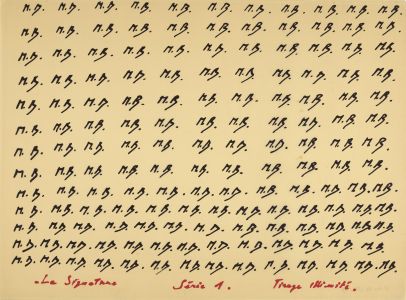 M.B. M.B. M.B. M.B. M.B. M.B. M.B. M.B. M.B. M.B. M.B.
M.B. M.B. M.B. M.B. M.B. M.B. M.B. M.B. M.B. M.B. M.B.
M.B. M.B. M.B. M.B. M.B. M.B. M.B. M.B. M.B. M.B. M.B.
M.B. M.B. M.B. M.B. M.B. M.B. M.B. M.B. M.B. M.B. M.B.
M.B. M.B. M.B. M.B. M.B. M.B. M.B. M.B. M.B. M.B. M.B.
M.B. M.B. M.B. M.B. M.B. M.B. M.B. M.B. M.B. M.B. M.B.
M.B. M.B. M.B. M.B. M.B. M.B. M.B. M.B. M.B. M.B. M.B.
M.B. M.B. M.B. M.B. M.B. M.B. M.B. M.B. M.B. M.B. M.B.
M.B. M.B. M.B. M.B. M.B. M.B. M.B. M.B. M.B. M.B. M.B. M.B.
M.B. M.B. M.B. M.B. M.B. M.B. M.B. M.B. M.B. M.B. M.B. M.B. M.B.
M.B. M.B. M.B. M.B. M.B. M.B. M.B. M.B. M.B. M.B. M.B. M.B. M.B.
M.B. M.B. M.B. M.B. M.B. M.B. M.B. M.B. M.B. M.B. M.B. M.B. M.B.
M.B. M.B. M.B. M.B. M.B. M.B. M.B. M.B. M.B. M.B. M.B. M.B. M.B.
-La Signature Série 1. Tirage illimité.